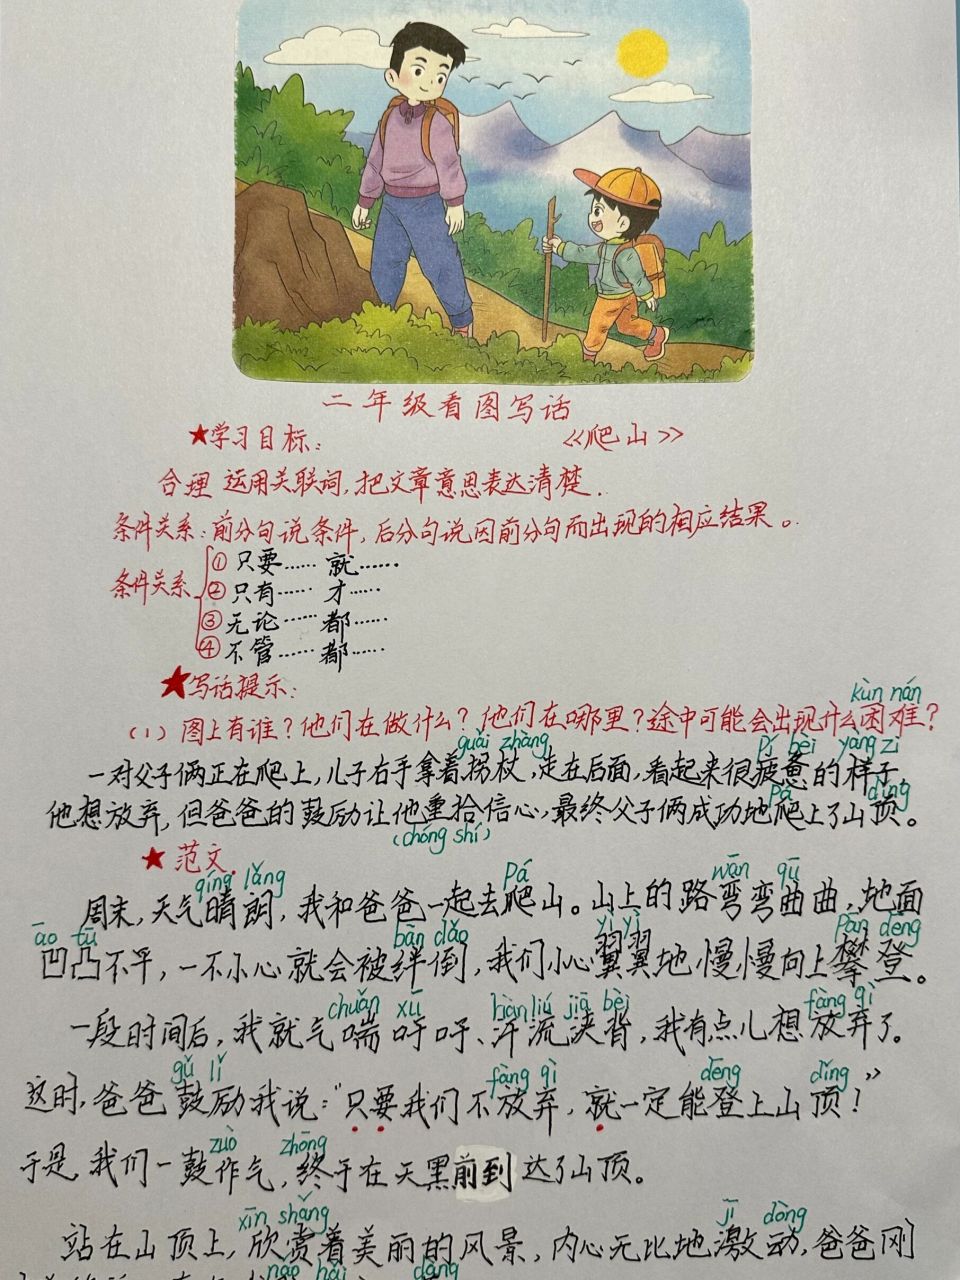 二年级看图写话
★学习目标：
《爬山》
合理运用关联词，把文章意思表达清楚．
条件关系：前分句说条件，后分句说因前分句而出现的相应结果。
条件关系
①只要……就……
②只有……才……
③无论……都……
④不管……都……
★写话提示：
kùn nán
（1）图上有谁？他们在做什么？他们在哪里？途中可能会出现什么困难？
guǎi zhàng pí bèi yàng zi
一对父子俩正在爬上，儿子右手拿着拐杖，走在后面，看起来很疲惫的样子，
pá dǐng
他想放弃，但爸爸的鼓励让他重拾信心，最终父子俩成功地爬上了山顶。
（chóng shí）
★范文．
qíng lǎng pá wān qū
周末，天气晴朗，我和爸爸一起去爬山。山上的路弯弯曲曲，地面
āo tū bàn dǎo yì yì pān dēng
凹凸不平，一不小心就会被绊倒，我们小心翼翼地慢慢向上攀登。
chuǎn xū hàn liú jiā bèi fàng qì
一段时间后，我就气喘吁吁、汗流浃背，我有点儿想放弃了。
gǔ lì fàng qì dēng dǐng
这时，爸爸鼓励我说：“只要我们不放弃，就一定能登上山顶！”
zuò zhōng
于是，我们一鼓作气，终于在天黑前到达了山顶。
xīn shǎng jī dòng
站在山顶上，欣赏着美丽的风景，内心无比地激动，爸爸刚